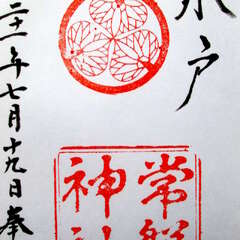 水戸
常磐
神社
二十一年七月十九日奉